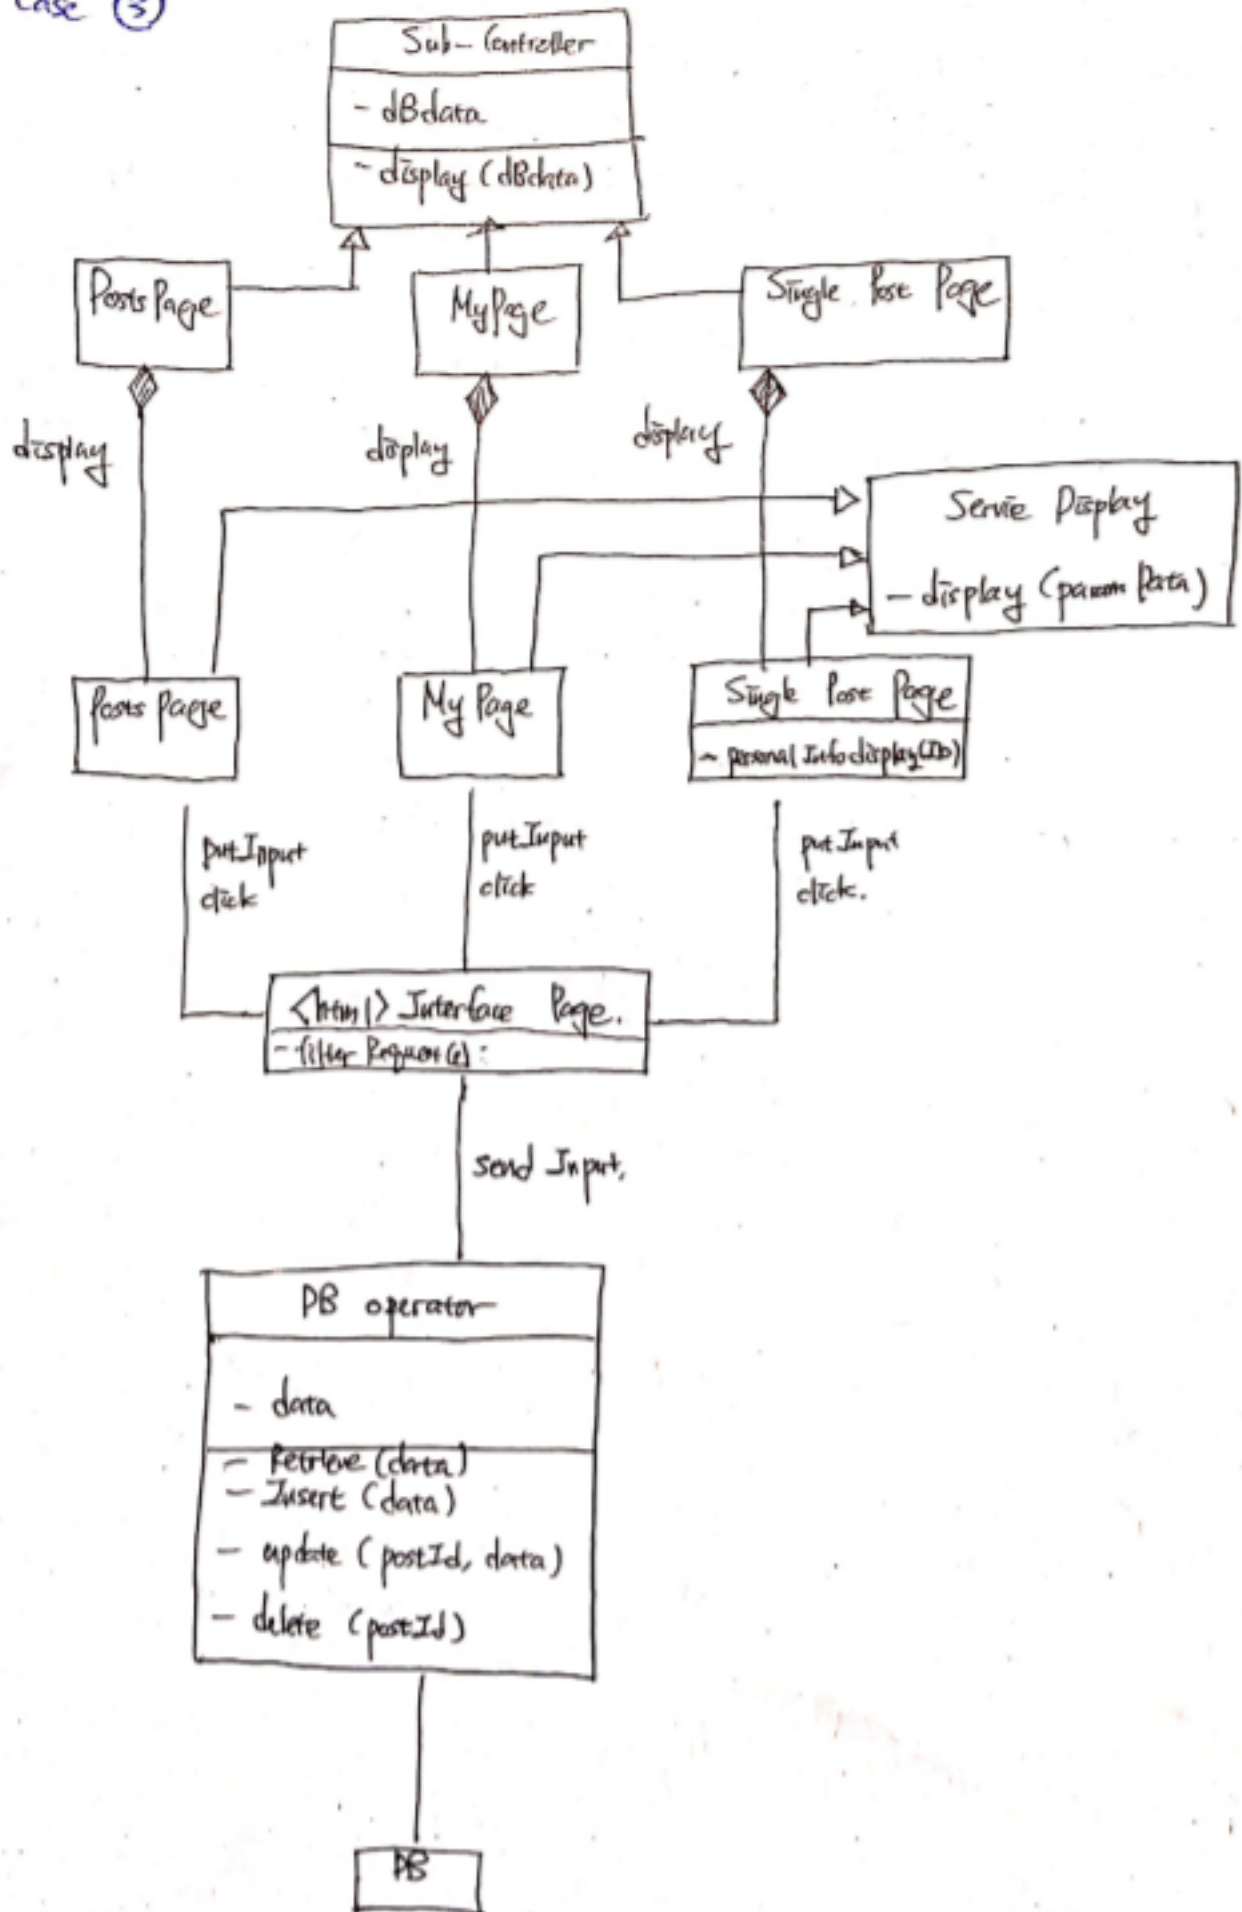 Case ③
Sub-Controller
- dBdata
- display (dBdata)
Posts Page
My Page
Single Post Page
display
display
display
Servie Display
- display (param Data)
Posts Page
My Page
Single Post Page
- personal Info display (ID)
put Input
click
put Input
click
put Input
click.
<html> Interface Page.
- filter Request (e) :
send Input,
DB operator
- data
- Retrieve (data)
- Insert (data)
- update (postId, data)
- delete (postId)
DB